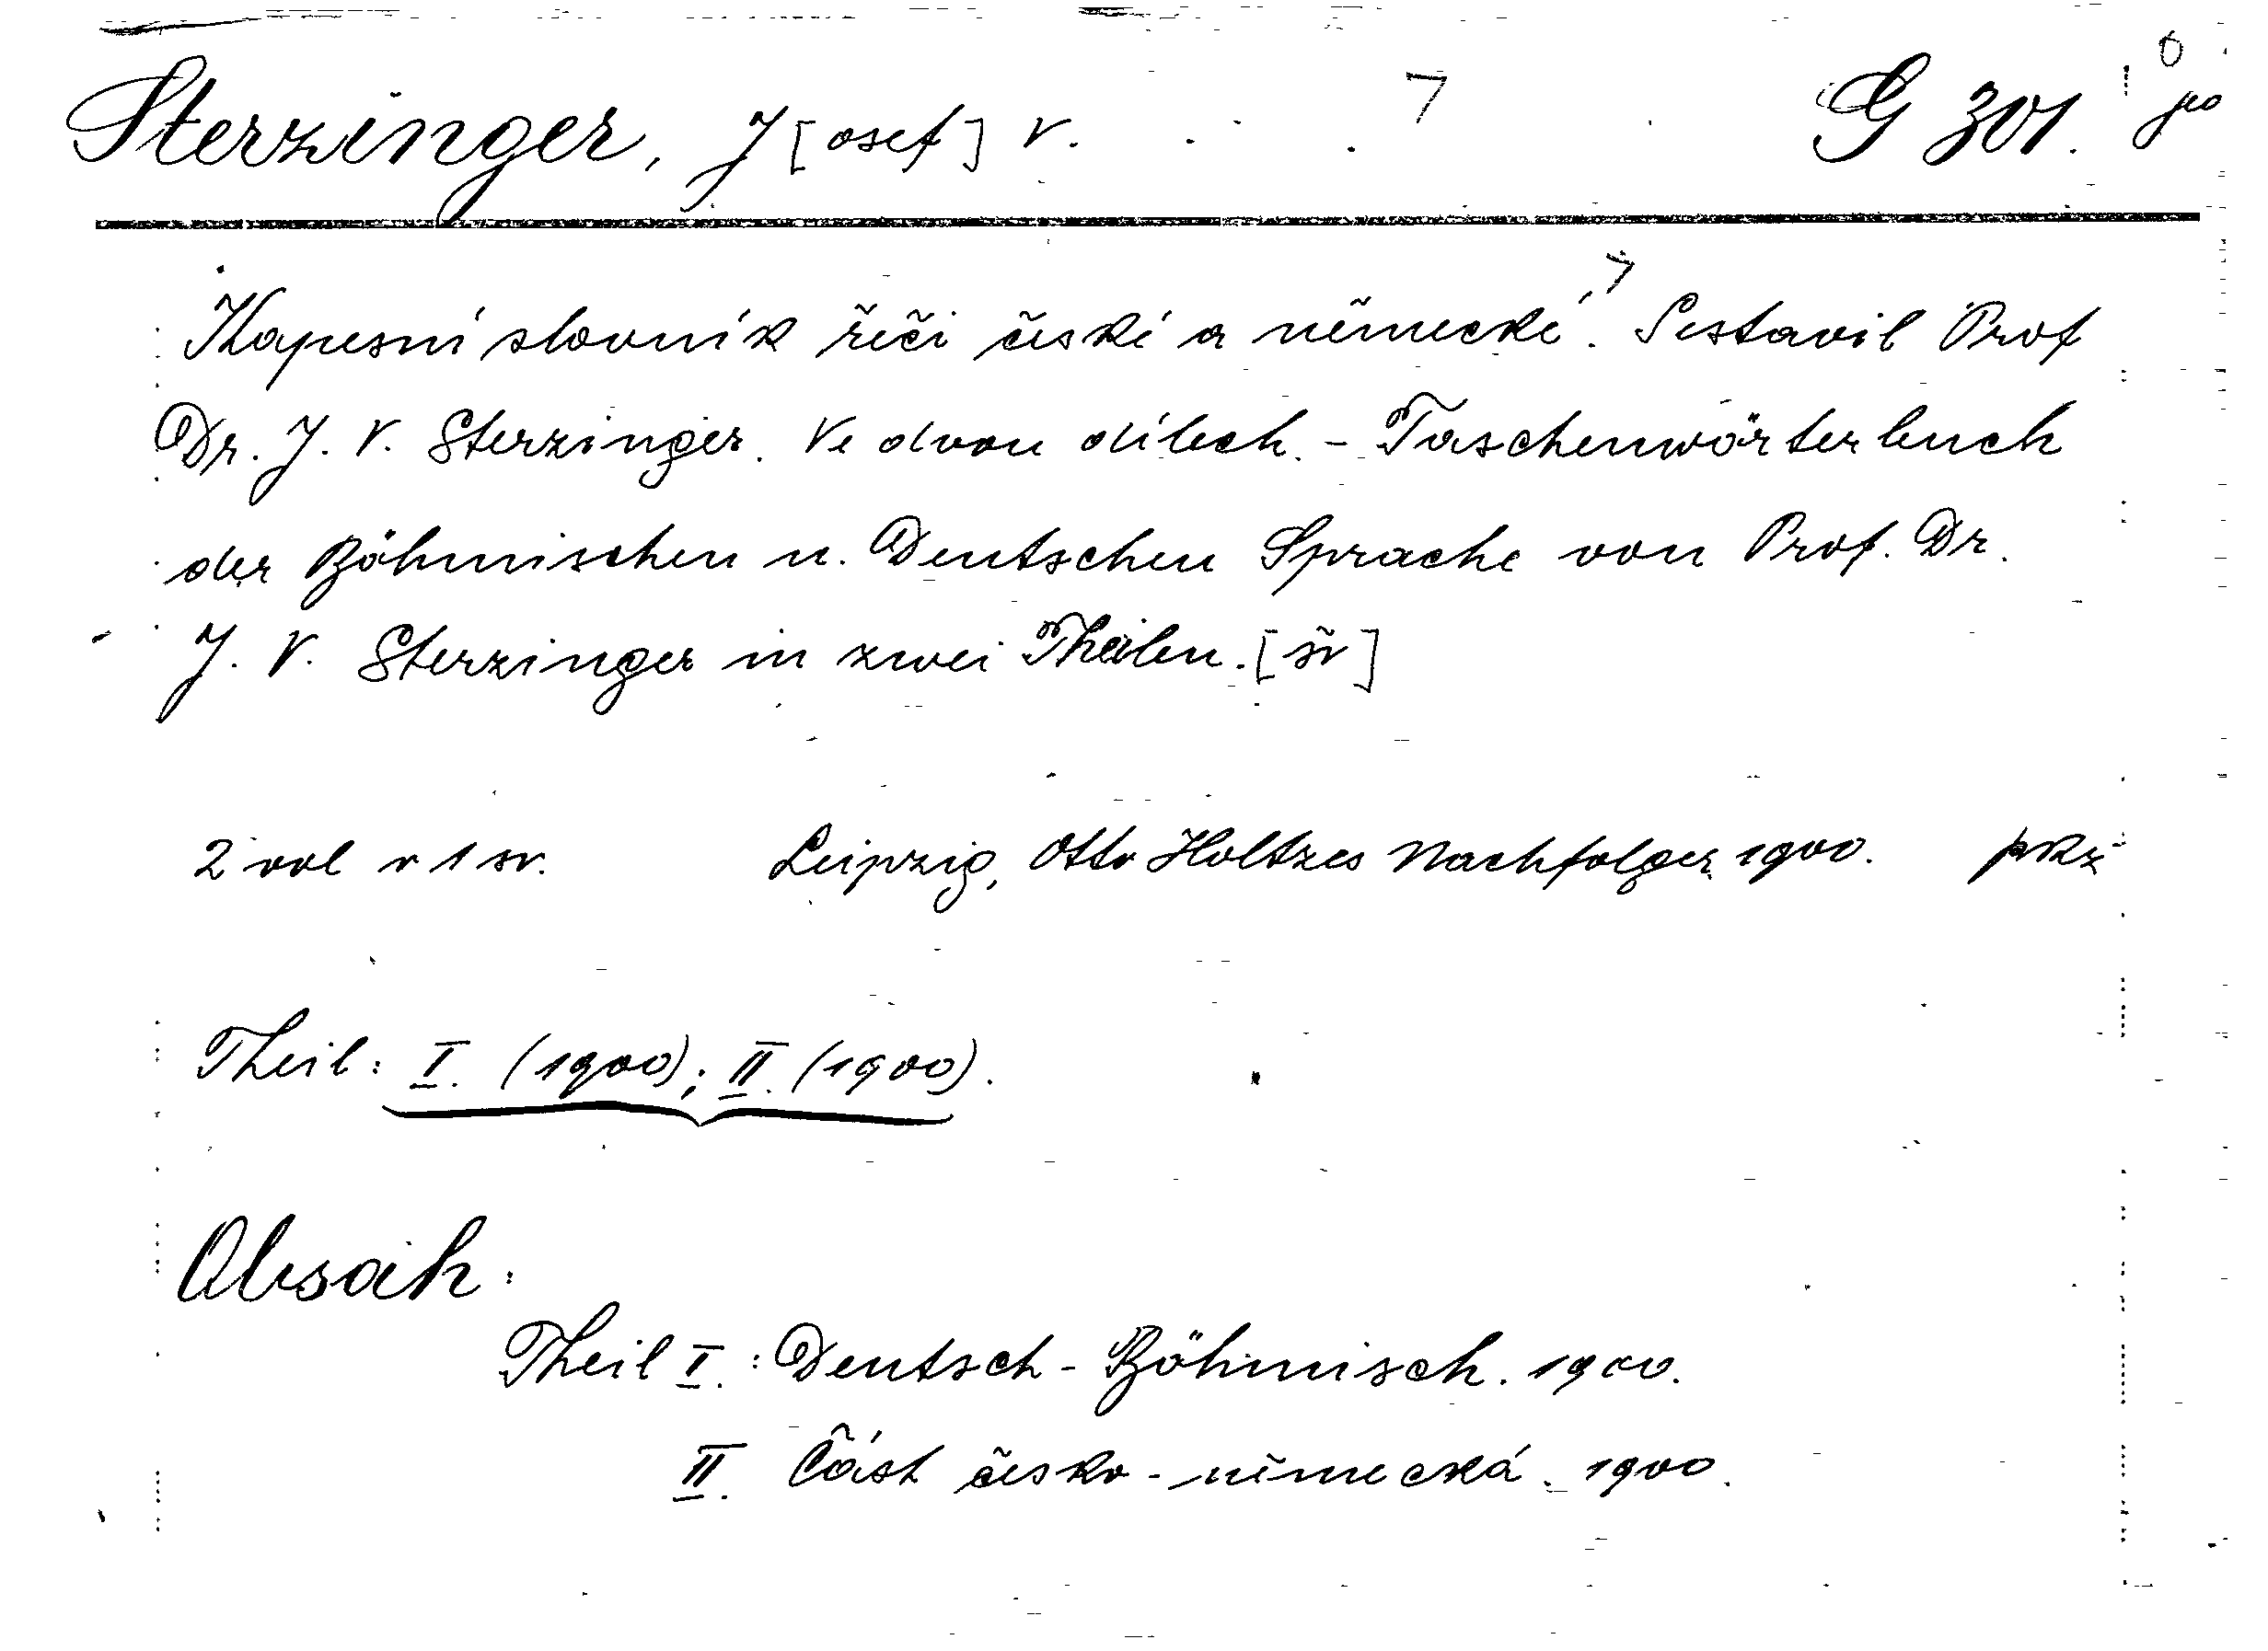 Sterzinger, J[osef] V. G 301.
Kapesní slovník řeči české a německé. Sestavil Prof
Dr. J. V. Sterzinger. Ve dvou dílech. - Taschenwörterbuch
der Böhmischen u. Deutschen Sprache von Prof. Dr.
J. V. Sterzinger in zwei Theilen. [šv]
2 vol v 1 sv. Leipzig, Otto Holtzes Nachfolger 1900.
Theil: I. (1900); II. (1900).
Obsah:
Theil I.: Deutsch - Böhmisch. 1900.
II. Část česko - německá. 1900.